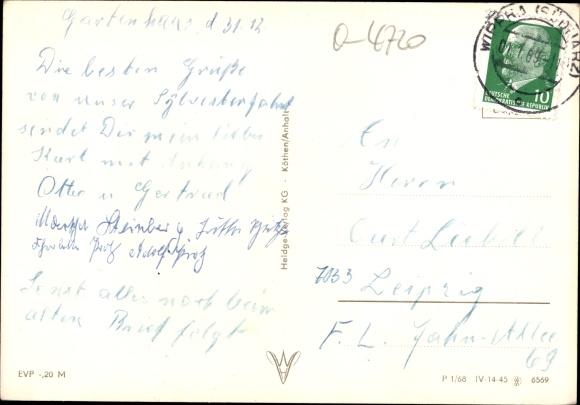 Gartenhaus, d 31.12
O-4720
Die besten Grüße
von unser Sylvesterfahrt
sendet Dir mein lieber
Kurt mit Anhang
Otto u Gertrud
Steinberg u
Adolf
Sonst alles noch beim
alten Brief folgt
An
Herrn
Curt Liebold
7033 Leipzig
F. L. Jahn-Allee
69
WIPPRA (SÜDHARZ)
DEUTSCHE
DEMOKRATISCHE REPUBLIK
10
Heldge-Verlag KG · Köthen/Anhalt
EVP -,20 M
P 1/68 IV-14-45 6569